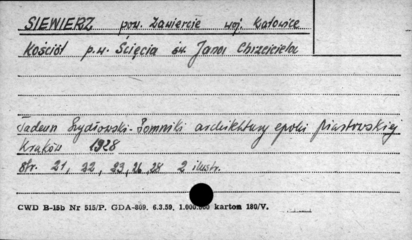 SIEWIERZ pow. Zawiercie woj. Katowice
Kościół p.w. Ścięcia św. Jana Chrzciciela
Tadeusz Szydłowski - Pomniki architektury epoki piastowskiej
Kraków 1928
str. 21, 22, 23, 26, 28 2 ilustr.
CWD B-15b Nr 515/P. GDA-809. 6.3.59, 1.000.000 karton 180/V.